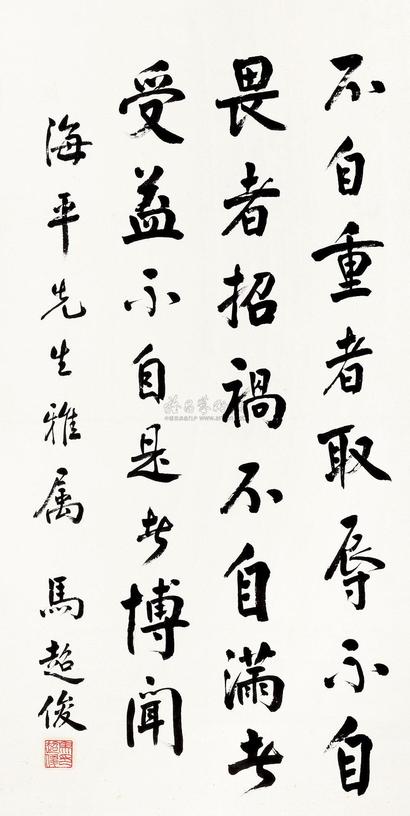 不自重者取辱不自
畏者招禍不自滿者
受益不自是者博聞
海平先生雅属 馬超俊